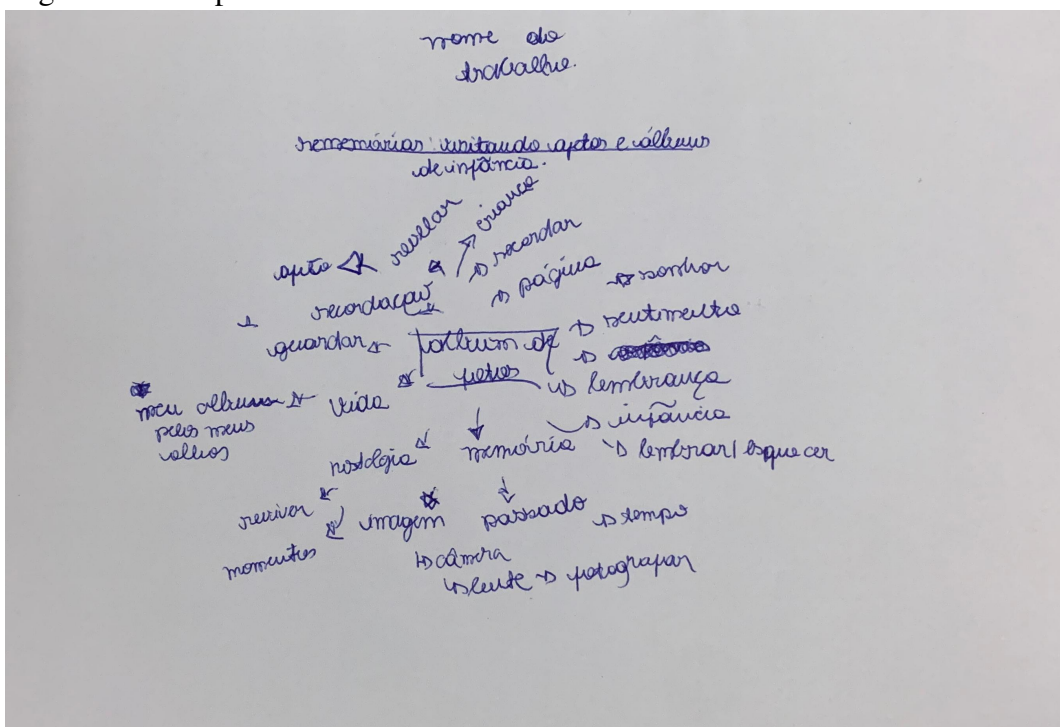 nome do
trabalho.
rememórias: visitando aptos e álbuns
de infância.
revelar
criança
apto
recordar
recordação
página
sonhar
guardar
álbum de
fotos
sentimento
lembrança
meu album
pelos meus
olhos
vida
infância
nostalgia
memória
lembrar/esquecer
reviver
imagem
passado
tempo
momentos
câmera
lente
fotografar